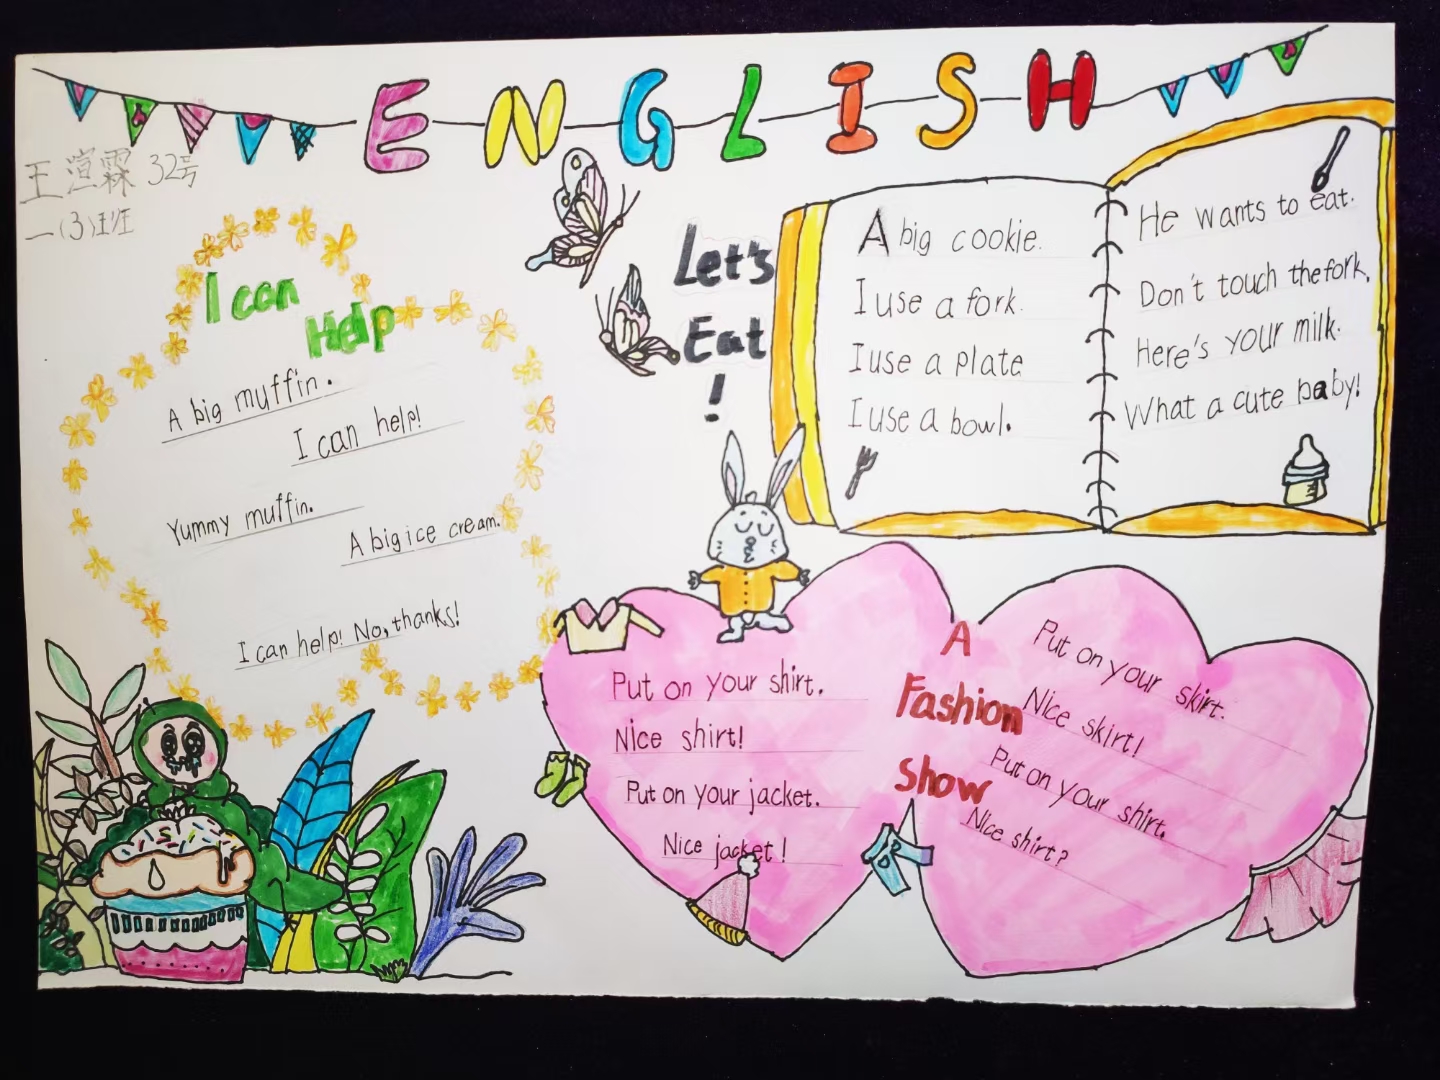 ENGLISH
王渲霖 32号
一(3)班
I can
Help
A big muffin.
I can help!
Yummy muffin.
A big ice cream.
I can help! No, thanks!
Let's
Eat
!
A big cookie.
I use a fork.
I use a plate
I use a bowl.
He wants to eat.
Don't touch the fork.
Here's your milk.
What a cute baby!
A
Fashion
Show
Put on your shirt.
Nice shirt!
Put on your jacket.
Nice jacket!
Put on your skirt.
Nice skirt!
Put on your shirt.
Nice shirt?